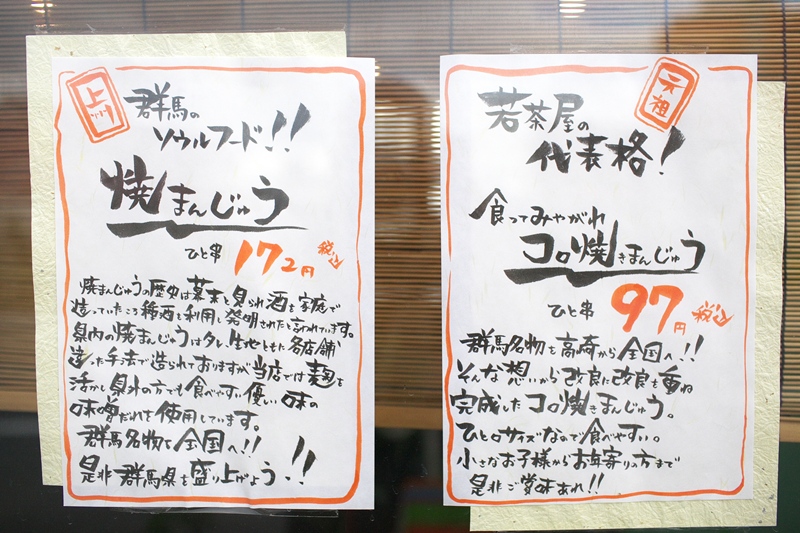 上州
群馬の
ソウルフード!!
焼まんじゅう
ひと串 172円 税込
焼まんじゅうの歴史は幕末と見られ酒を家庭で
造っていたころ種酒を利用し発明されたと言われています。
県内の焼まんじゅうはタレ、生地ともに各店舗
違った手法で造られておりますが当店では麹を
活かし県外の方でも食べやすい優しい味の
味噌だれを使用しています。
群馬名物を全国へ!!
是非群馬県を盛り上げよう!!
元祖
若茶屋の
代表格!
食ってみやがれ
コロ焼きまんじゅう
ひと串 97円 税込
群馬名物を高崎から全国へ!!
そんな想いから改良に改良を重ね
完成したコロ焼きまんじゅう。
ひと口サイズなので食べやすい。
小さなお子様からお年寄りの方まで
是非ご賞味あれ!!